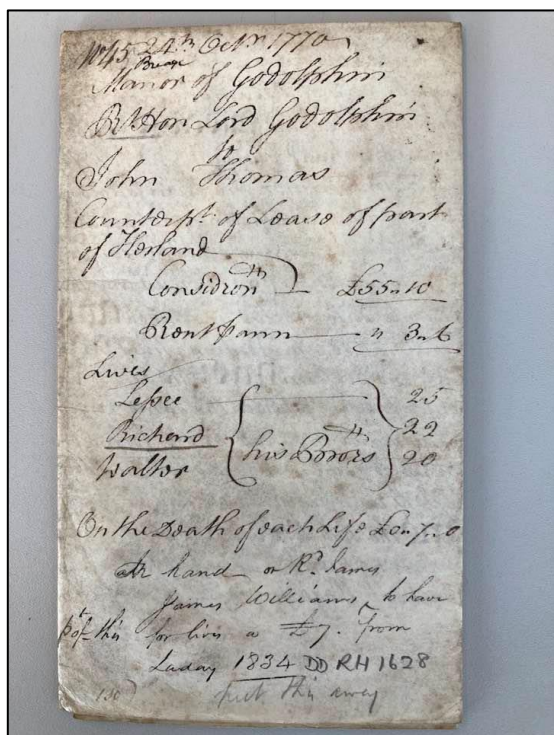 No 45 24th Octr 1770
Breage
Manor of Godolphin
Rt Hon Lord Godolphin
to
John Thomas
Counterpt. of Lease of part
of Herland
Considron £55 " 10
Rent p ann " 3 " 6
Lives
Lessee 25
Richard his Brors 22
Walter 20
On the Death of each Life £0 " 7 " 0
In hand or Rd James
James Williams to have
pt of this for lives a £7. From
Laday 1834 DD RH 1628
130 put this away